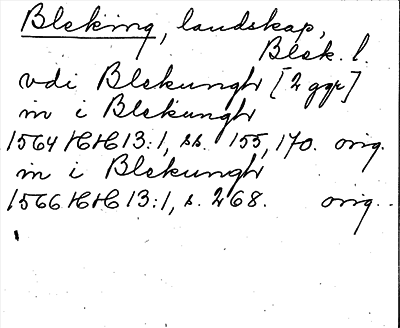 Bleking, landskap,
Blek. l.
vdi Blekungh [2 ggr]
in i Blekungh
1564 HH 13:1, ss. 155, 170. orig.
in i Blekungh
1566 HH 13:1, s. 268. orig.